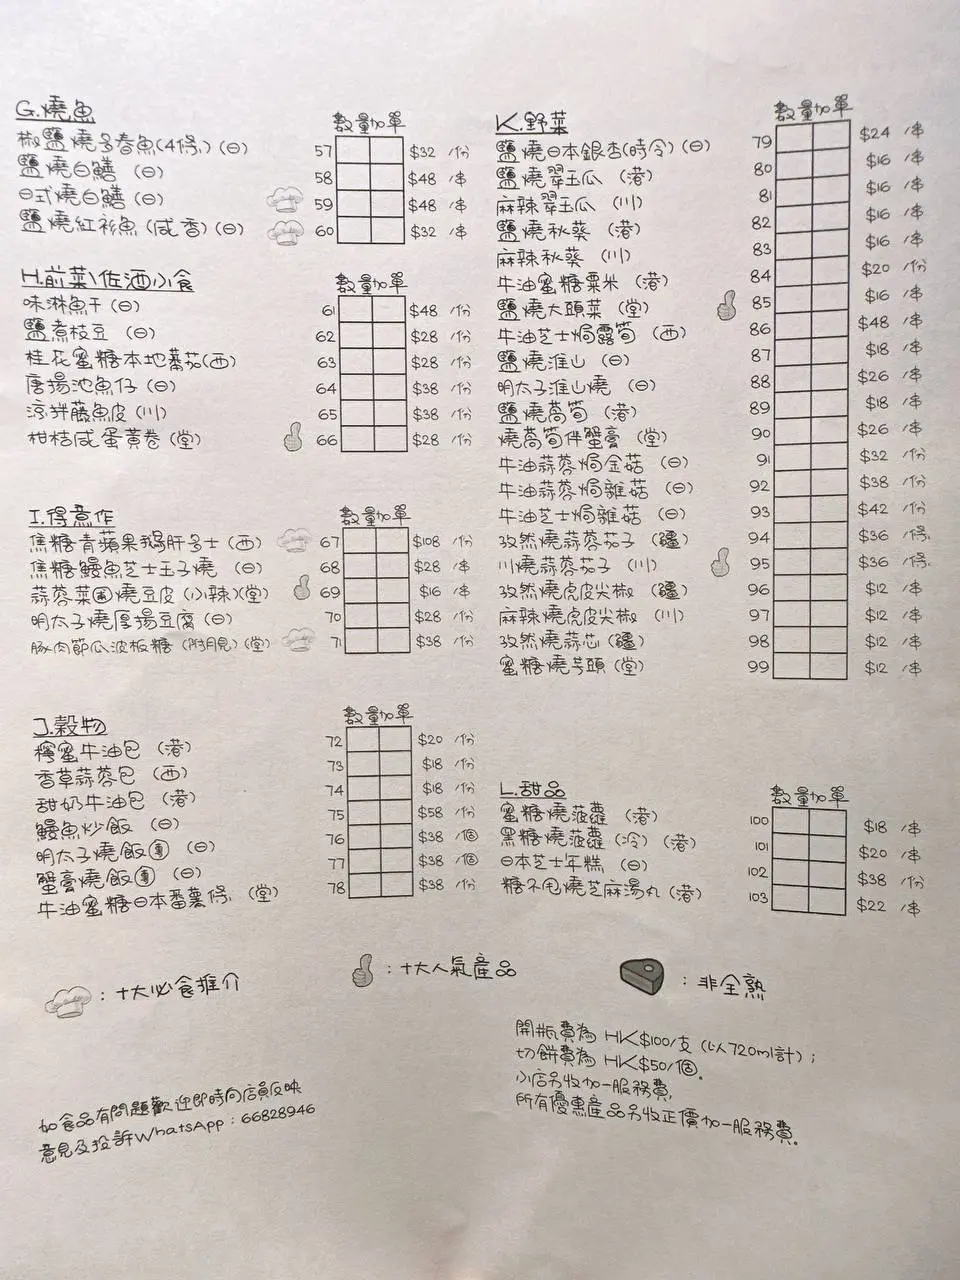 G.燒魚 數量 加單
椒鹽燒多春魚(4條) (日) 57 $32 /份
鹽燒白鱔 (日) 58 $48 /串
日式燒白鱔 (日) 59 $48 /串
鹽燒紅衫魚 (咸香) (日) 60 $32 /串
H.前菜\佐酒小食 數量 加單
味淋魚干 (日) 61 $48 /份
鹽煮枝豆 (日) 62 $28 /份
桂花蜜糖本地蕃茄(西) 63 $28 /份
唐揚池魚仔 (日) 64 $38 /份
涼拌藤魚皮 (川) 65 $38 /份
柑桔咸蛋黃卷 (堂) 66 $28 /份
I.得意作 數量 加單
焦糖青蘋果鵝肝多士 (西) 67 $108 /份
焦糖鰻魚芝士玉子燒 (日) 68 $28 /串
蒜蓉菜圃燒豆皮 (小辣)(堂) 69 $16 /串
明太子燒厚揚豆腐 (日) 70 $28 /份
豚肉節瓜波板糖 (附月見) (堂) 71 $38 /份
J.穀物 數量 加單
檸蜜牛油包 (港) 72 $20 /份
香草蒜蓉包 (西) 73 $18 /份
甜奶牛油包 (港) 74 $18 /份
鰻魚炒飯 (日) 75 $58 /份
明太子燒飯團 (日) 76 $38 /個
蟹膏燒飯團 (日) 77 $38 /個
牛油蜜糖日本番薯條 (堂) 78 $38 /份
K.野菜 數量 加單
鹽燒日本銀杏(時令) (日) 79 $24 /串
鹽燒翠玉瓜 (港) 80 $16 /串
麻辣翠玉瓜 (川) 81 $16 /串
鹽燒秋葵 (港) 82 $16 /串
麻辣秋葵 (川) 83 $16 /串
牛油蜜糖粟米 (港) 84 $20 /份
鹽燒大頭菜 (堂) 85 $16 /串
牛油芝士焗露筍 (西) 86 $48 /串
鹽燒淮山 (日) 87 $18 /串
明太子淮山燒 (日) 88 $26 /串
鹽燒萵筍 (港) 89 $18 /串
燒萵筍伴蟹膏 (堂) 90 $26 /串
牛油蒜蓉焗金菇 (日) 91 $32 /份
牛油蒜蓉焗雜菇 (日) 92 $38 /份
牛油芝士焗雜菇 (日) 93 $42 /份
孜然燒蒜蓉茄子 (疆) 94 $36 /條
川燒蒜蓉茄子 (川) 95 $36 /條
孜然燒虎皮尖椒 (疆) 96 $12 /串
麻辣燒虎皮尖椒 (川) 97 $12 /串
孜然燒蒜芯 (疆) 98 $12 /串
蜜糖燒芋頭 (堂) 99 $12 /串
L.甜品 數量 加單
蜜糖燒菠蘿 (港) 100 $18 /串
黑糖燒菠蘿 (冷) (港) 101 $20 /串
日本芝士年糕 (日) 102 $38 /份
糖不甩燒芝麻湯丸 (港) 103 $22 /串
：十大必食推介
：十大人氣產品
：非全熟
開瓶費為 HK$100/支 (以720ml計)；
切餅費為 HK$50/個.
小店另收加一服務費,
所有優惠產品另收正價加一服務費.
如食品有問題歡迎即時向店員反映
意見及投訴WhatsApp：66828946